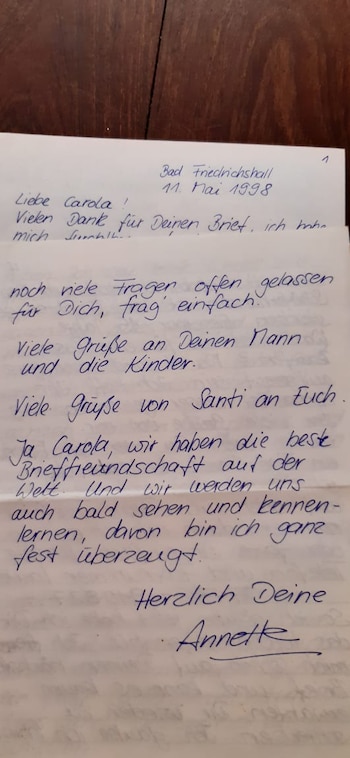 1
Bad Friedrichshall
11. Mai 1998
Liebe Carola!
Vielen Dank für Deinen Brief, ich habe
mich
noch viele Fragen offen gelassen
für Dich, frag' einfach.
Viele Grüße an Deinen Mann
und die Kinder.
Viele Grüße von Santi an Euch.
Ja Carola, wir haben die beste
Brieffreundschaft auf der
Welt. Und wir werden uns
auch bald sehen und kennen-
lernen, davon bin ich ganz
fest überzeugt.
Herzlich Deine
Annette